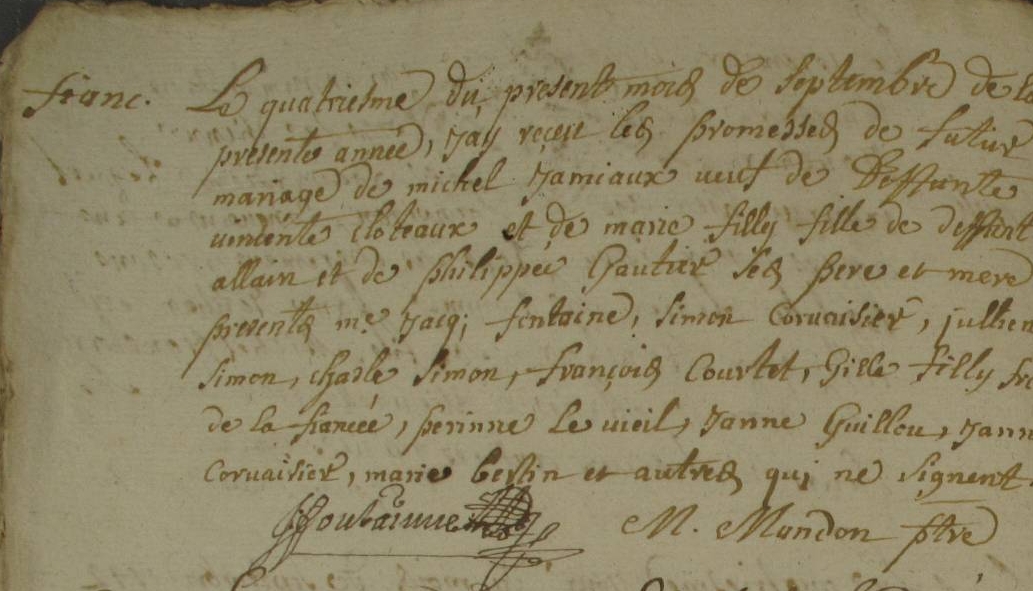 fianc. Le quatriesme du present mois de septembre de la
presente année, j'ay reçeu les promesses de futur
mariage de michel Jamiaux veuf de Deffunte
vincente cloteaux et de marie filly fille de deffunt
allain et de philippee Gautier ses pere et mere
presents me Jacq; fontaine, simon Corvaisier, jullien
simon, charle simon, françois Courtet, Gille filly fr
de la fiancée, perinne Le vieil, Janne Guillou, Jann
Corvaisier, marie bertin et autres qui ne signent.
Jffontainne M. Mandon ptre